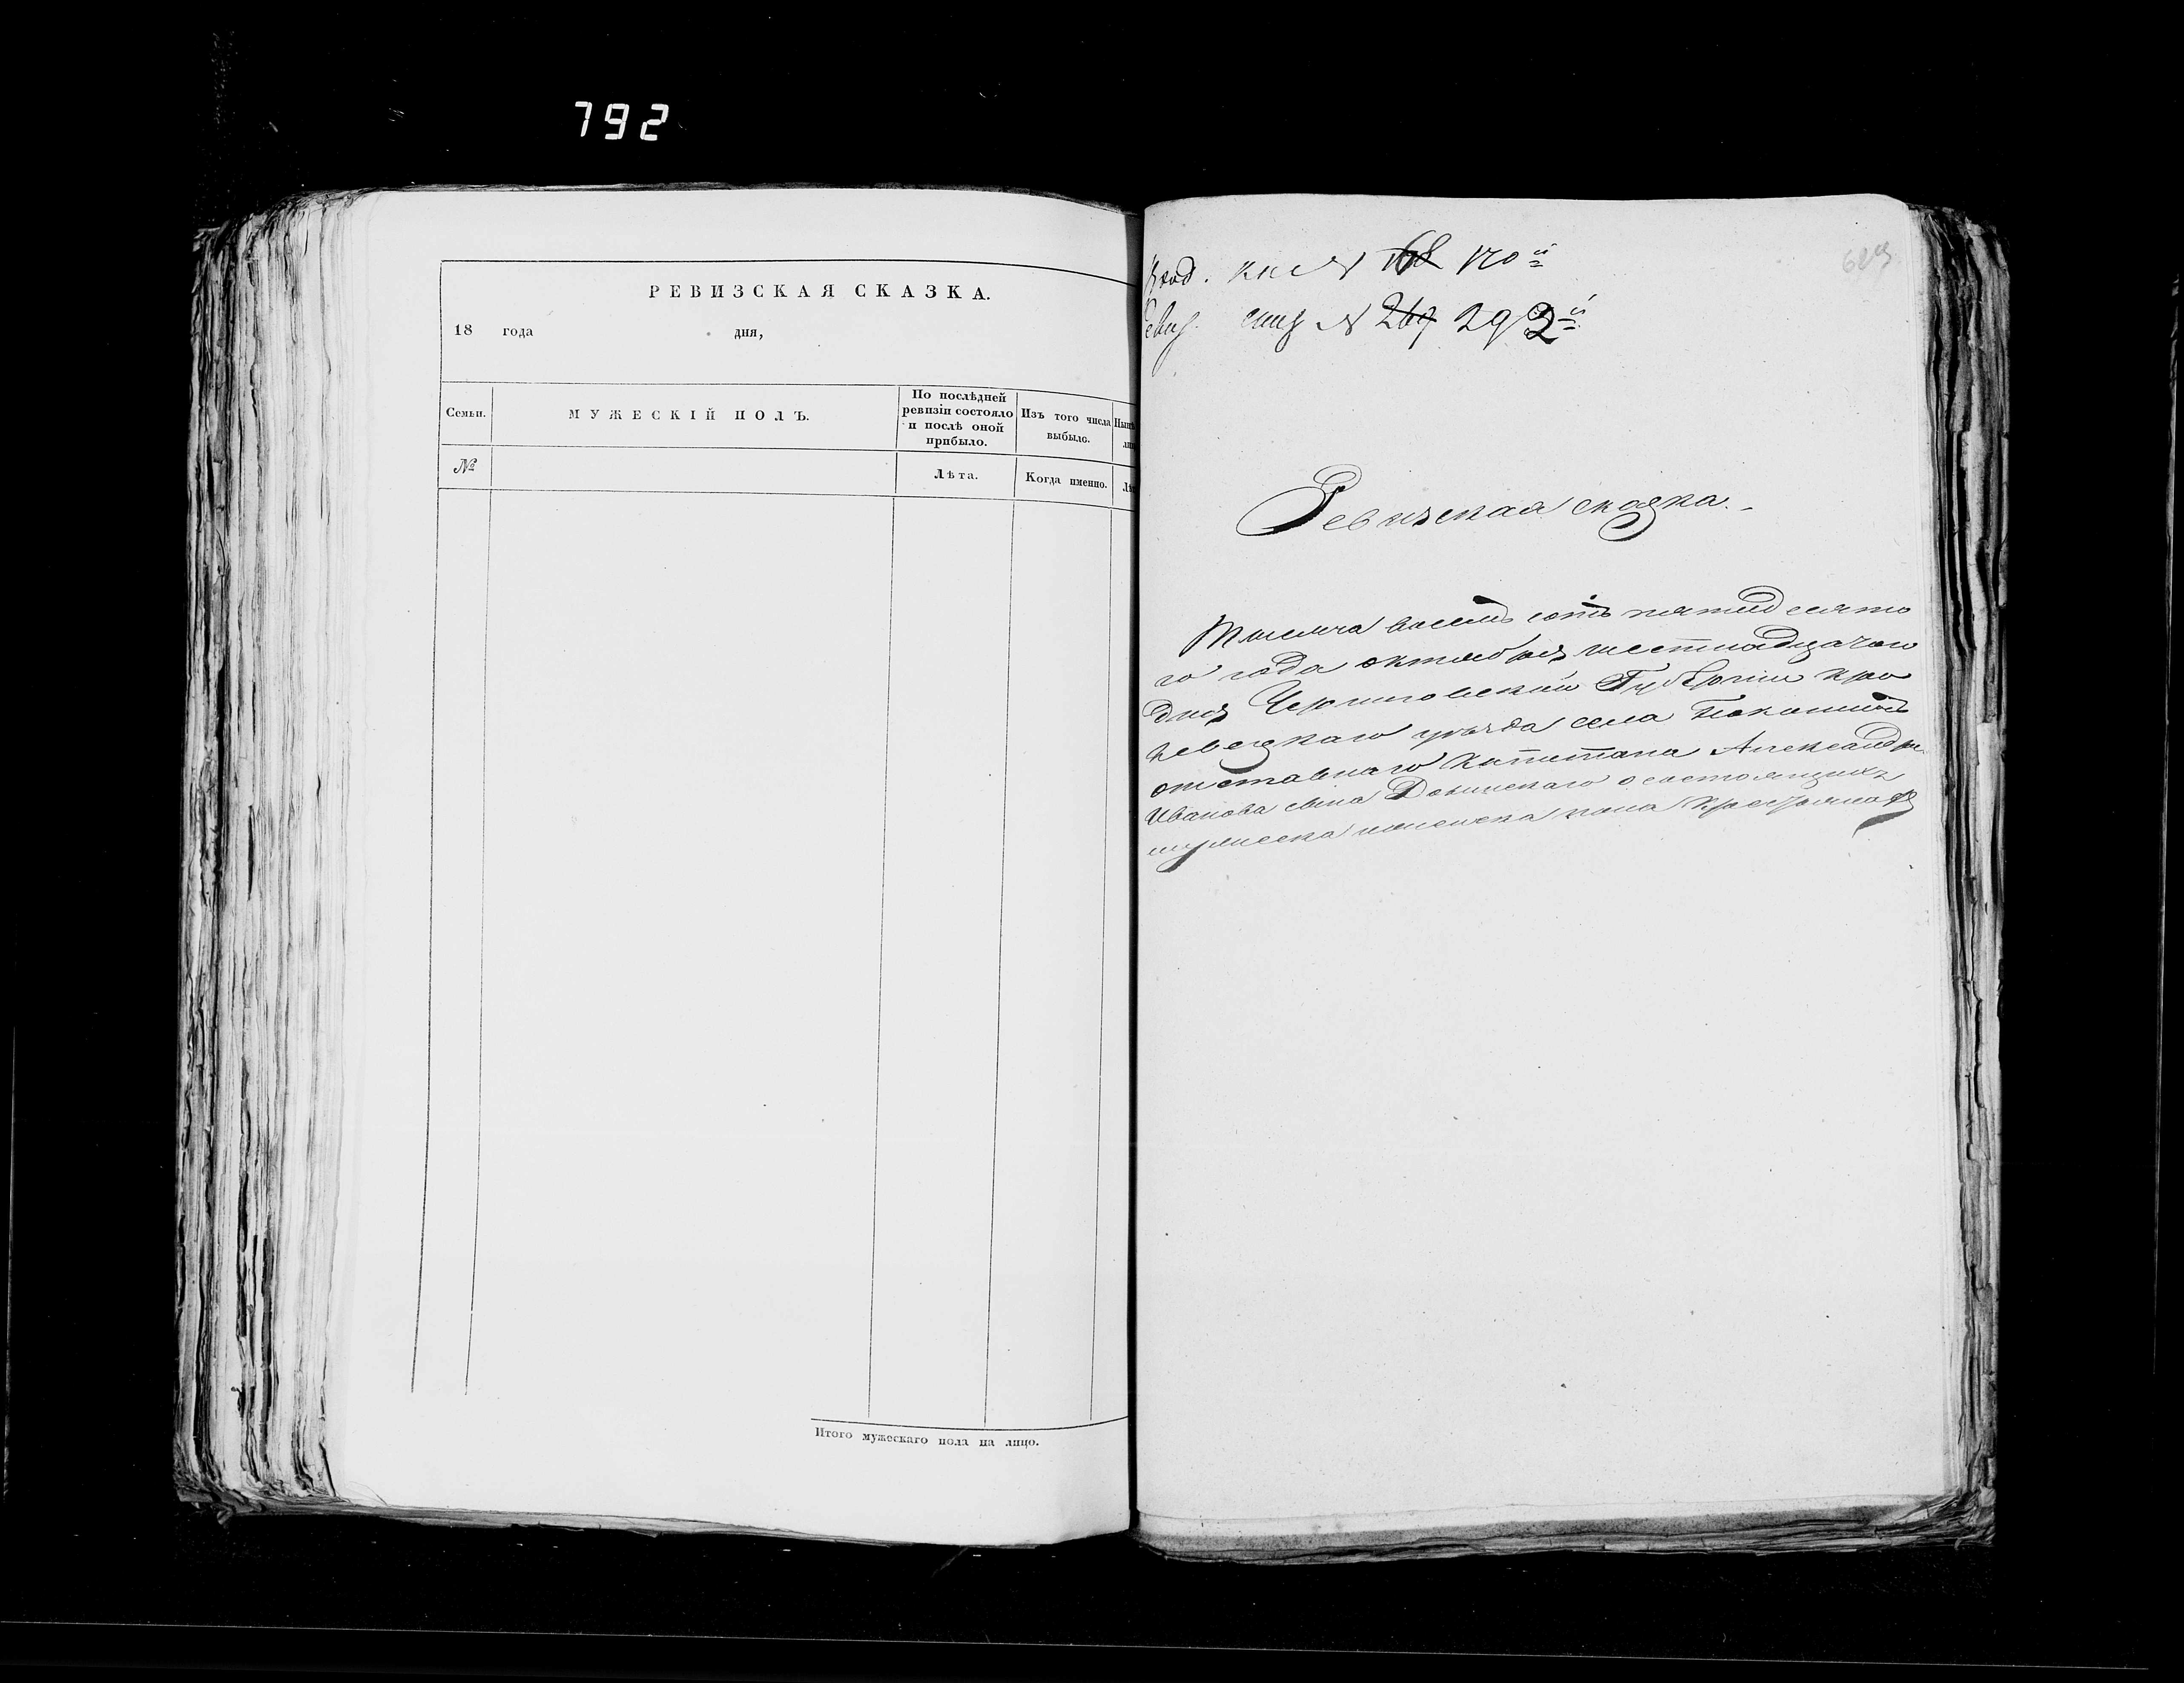 792
РЕВИЗСКАЯ СКАЗКА.
18 года дня,
Семьи.
МУЖЕСКІЙ ПОЛЪ.
По послѣдней ревизіи состояло и послѣ оной прибыло.
Изъ того числа выбыло.
№
Лѣта.
Когда именно.
Итого мужескаго пола на лицо.
вход. кн № 168 170й
Ревиз. спис № 269 292й
Ревизская сказка.
Тысяча восемь сотъ пятидесято
го года октября шестнадцатого
дня Черниговской Губернии кро
левецкаго уезда села
отставнаго Капитана Александра
Иванова сына о состоящихъ
мужеска и женска пола крестьянахъ